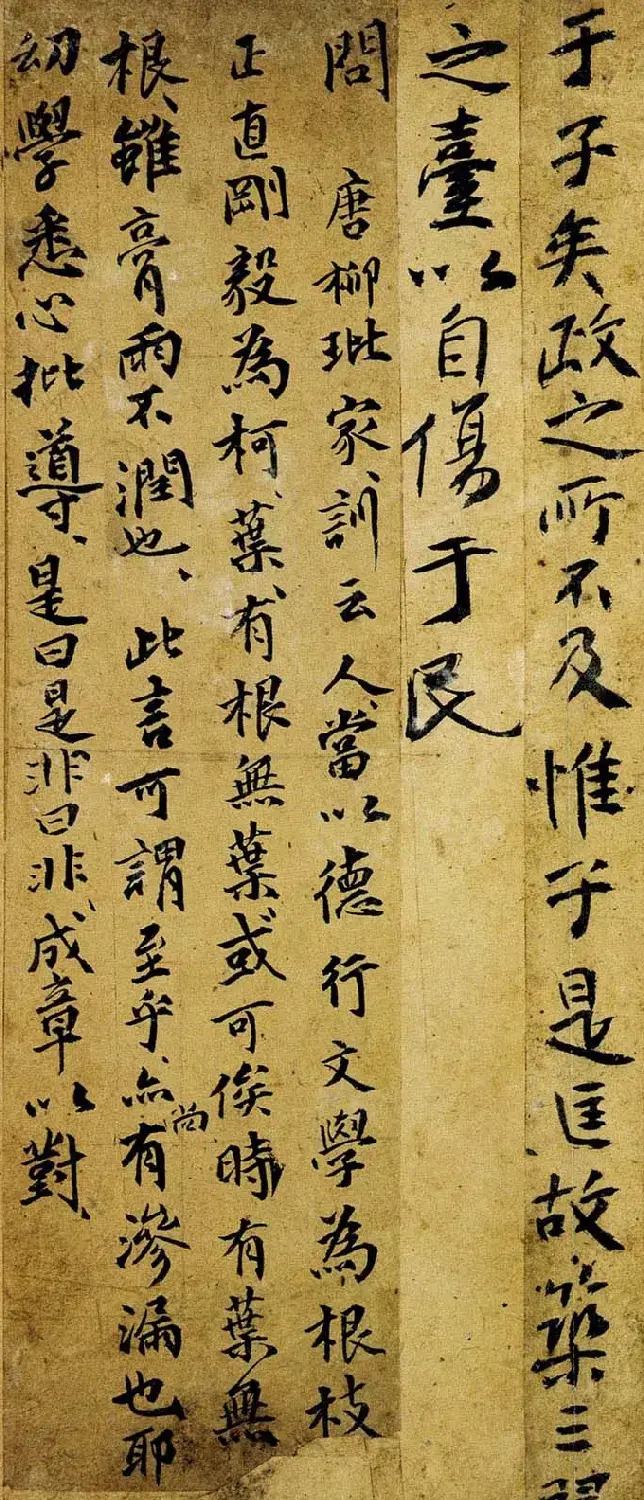 于子矣政之所不及惟于是匡故築三
之臺以自傷于民
問 唐柳玭家訓云人當以德行文學為根枝
正直剛毅為柯葉有根無葉或可俟時有葉無
根雖膏雨不潤也此言可謂至乎亦尚有滲漏也耶
幼學悉心批導是曰是非曰非成章以對